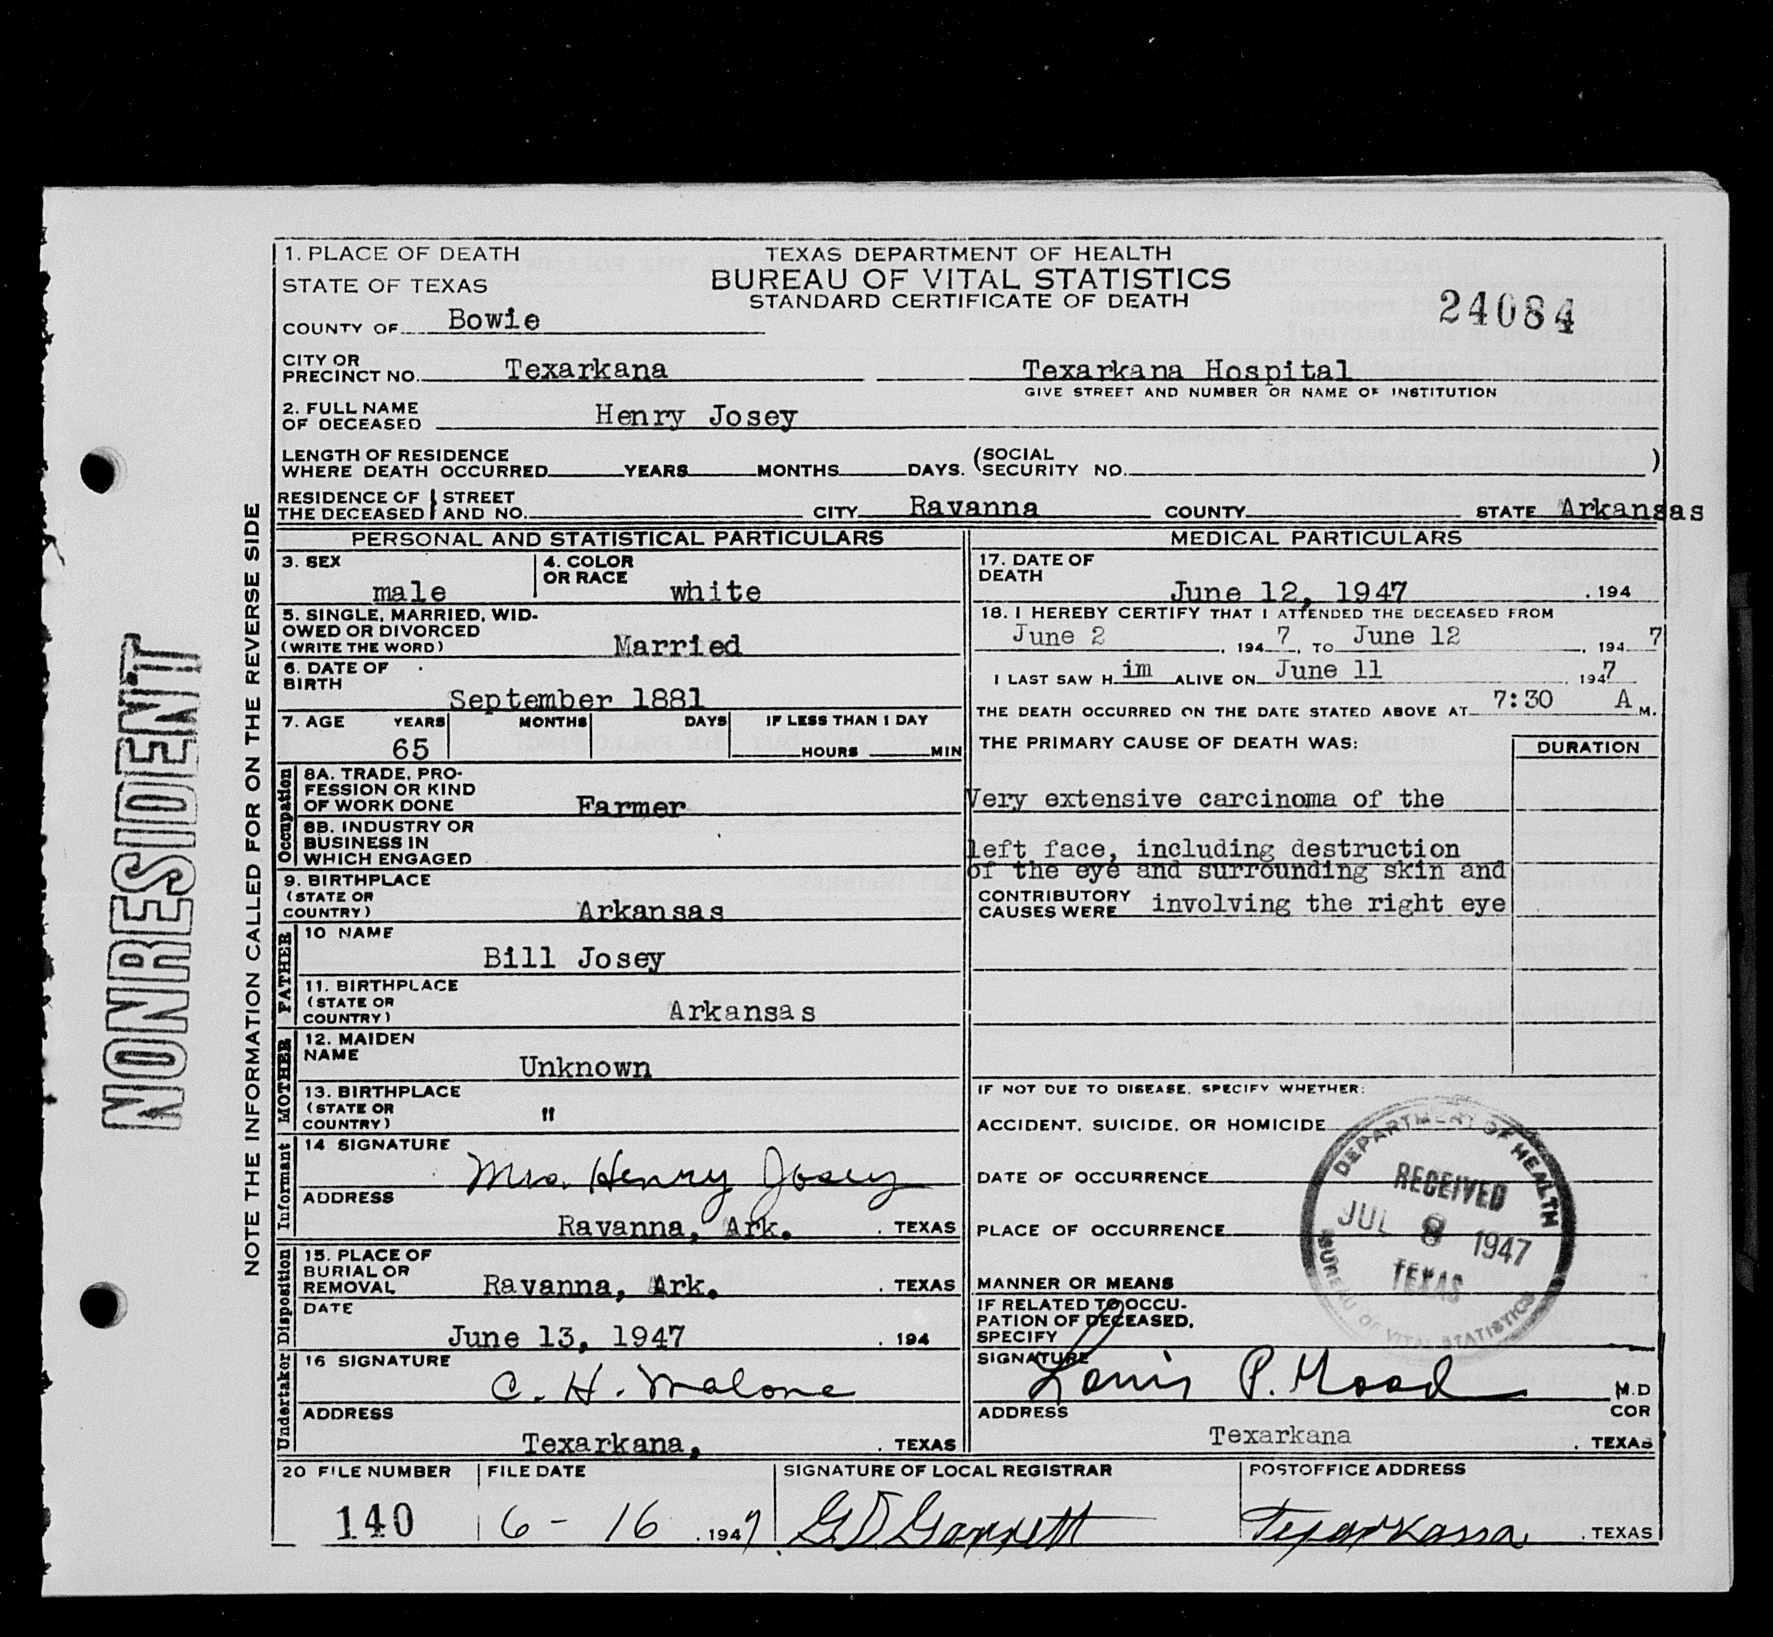 1. PLACE OF DEATH
STATE OF TEXAS
TEXAS DEPARTMENT OF HEALTH
BUREAU OF VITAL STATISTICS
STANDARD CERTIFICATE OF DEATH
24084
COUNTY OF Bowie
CITY OR PRECINCT NO. Texarkana Texarkana Hospital
GIVE STREET AND NUMBER OR NAME OF INSTITUTION
2. FULL NAME OF DECEASED Henry Josey
LENGTH OF RESIDENCE WHERE DEATH OCCURRED YEARS MONTHS DAYS. (SOCIAL SECURITY NO. )
RESIDENCE OF THE DECEASED } STREET AND NO. CITY Ravanna COUNTY STATE Arkansas
PERSONAL AND STATISTICAL PARTICULARS
3. SEX male
4. COLOR OR RACE white
5. SINGLE, MARRIED, WIDOWED OR DIVORCED (WRITE THE WORD) Married
6. DATE OF BIRTH September 1881
7. AGE YEARS MONTHS DAYS IF LESS THAN 1 DAY
65 HOURS MIN
Occupation
8A. TRADE, PROFESSION OR KIND OF WORK DONE Farmer
8B. INDUSTRY OR BUSINESS IN WHICH ENGAGED
9. BIRTHPLACE (STATE OR COUNTRY) Arkansas
FATHER
10 NAME Bill Josey
11. BIRTHPLACE (STATE OR COUNTRY) Arkansas
MOTHER
12. MAIDEN NAME Unknown
13. BIRTHPLACE (STATE OR COUNTRY) "
Informant
14 SIGNATURE Mrs. Henry Josey
ADDRESS Ravanna, Ark. . TEXAS
Disposition
15. PLACE OF BURIAL OR REMOVAL Ravanna, Ark. . TEXAS
DATE June 13, 1947 . 194
Undertaker
16 SIGNATURE C. H. Malone
ADDRESS Texarkana, . TEXAS
MEDICAL PARTICULARS
17. DATE OF DEATH June 12, 1947 . 194
18. I HEREBY CERTIFY THAT I ATTENDED THE DECEASED FROM
June 2, 1947, TO June 12, 1947
I LAST SAW H im ALIVE ON June 11, 1947
THE DEATH OCCURRED ON THE DATE STATED ABOVE AT 7:30 A M.
THE PRIMARY CAUSE OF DEATH WAS: DURATION
Very extensive carcinoma of the
left face, including destruction
of the eye and surrounding skin and
CONTRIBUTORY CAUSES WERE involving the right eye
IF NOT DUE TO DISEASE, SPECIFY WHETHER:
ACCIDENT, SUICIDE, OR HOMICIDE
DATE OF OCCURRENCE
PLACE OF OCCURRENCE
MANNER OR MEANS
IF RELATED TO OCCUPATION OF DECEASED, SPECIFY
DEPARTMENT OF HEALTH
RECEIVED
JUL 8 1947
TEXAS
BUREAU OF VITAL STATISTICS
SIGNATURE Louis P. Good M.D
COR
ADDRESS Texarkana . TEXAS
20 FILE NUMBER FILE DATE SIGNATURE OF LOCAL REGISTRAR POSTOFFICE ADDRESS
140 6-16 .1947 G.D. Garrett Texarkana . TEXAS
NOTE THE INFORMATION CALLED FOR ON THE REVERSE SIDE
NONRESIDENT